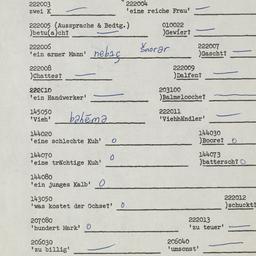 222003 222004
zwei K 'eine reiche Frau'
222005 (Aussprache & Bedtg.) 010022
)betu(a)cht )Gewier?
222006 222007
'ein armer Mann' nebać )Gascht?
222008 222009
)Chattes? )Dalfen?
222010 203100
'ein Handwerker' )Balmelooche?
145050 222011
'Vieh' bəhēma 'Viehhändler'
144020 144030
'eine schlechte Kuh' o )Boore? o
144070 144073
'eine trächtige Kuh' o )battersch? o
144080
'ein junges Kalb' o
143050 222012
'was kostet der Ochse?' o )schuckt?
207080 222013
'hundert Mark' o 'zu teuer'
206030 206040
'zu billig' 'umsonst'